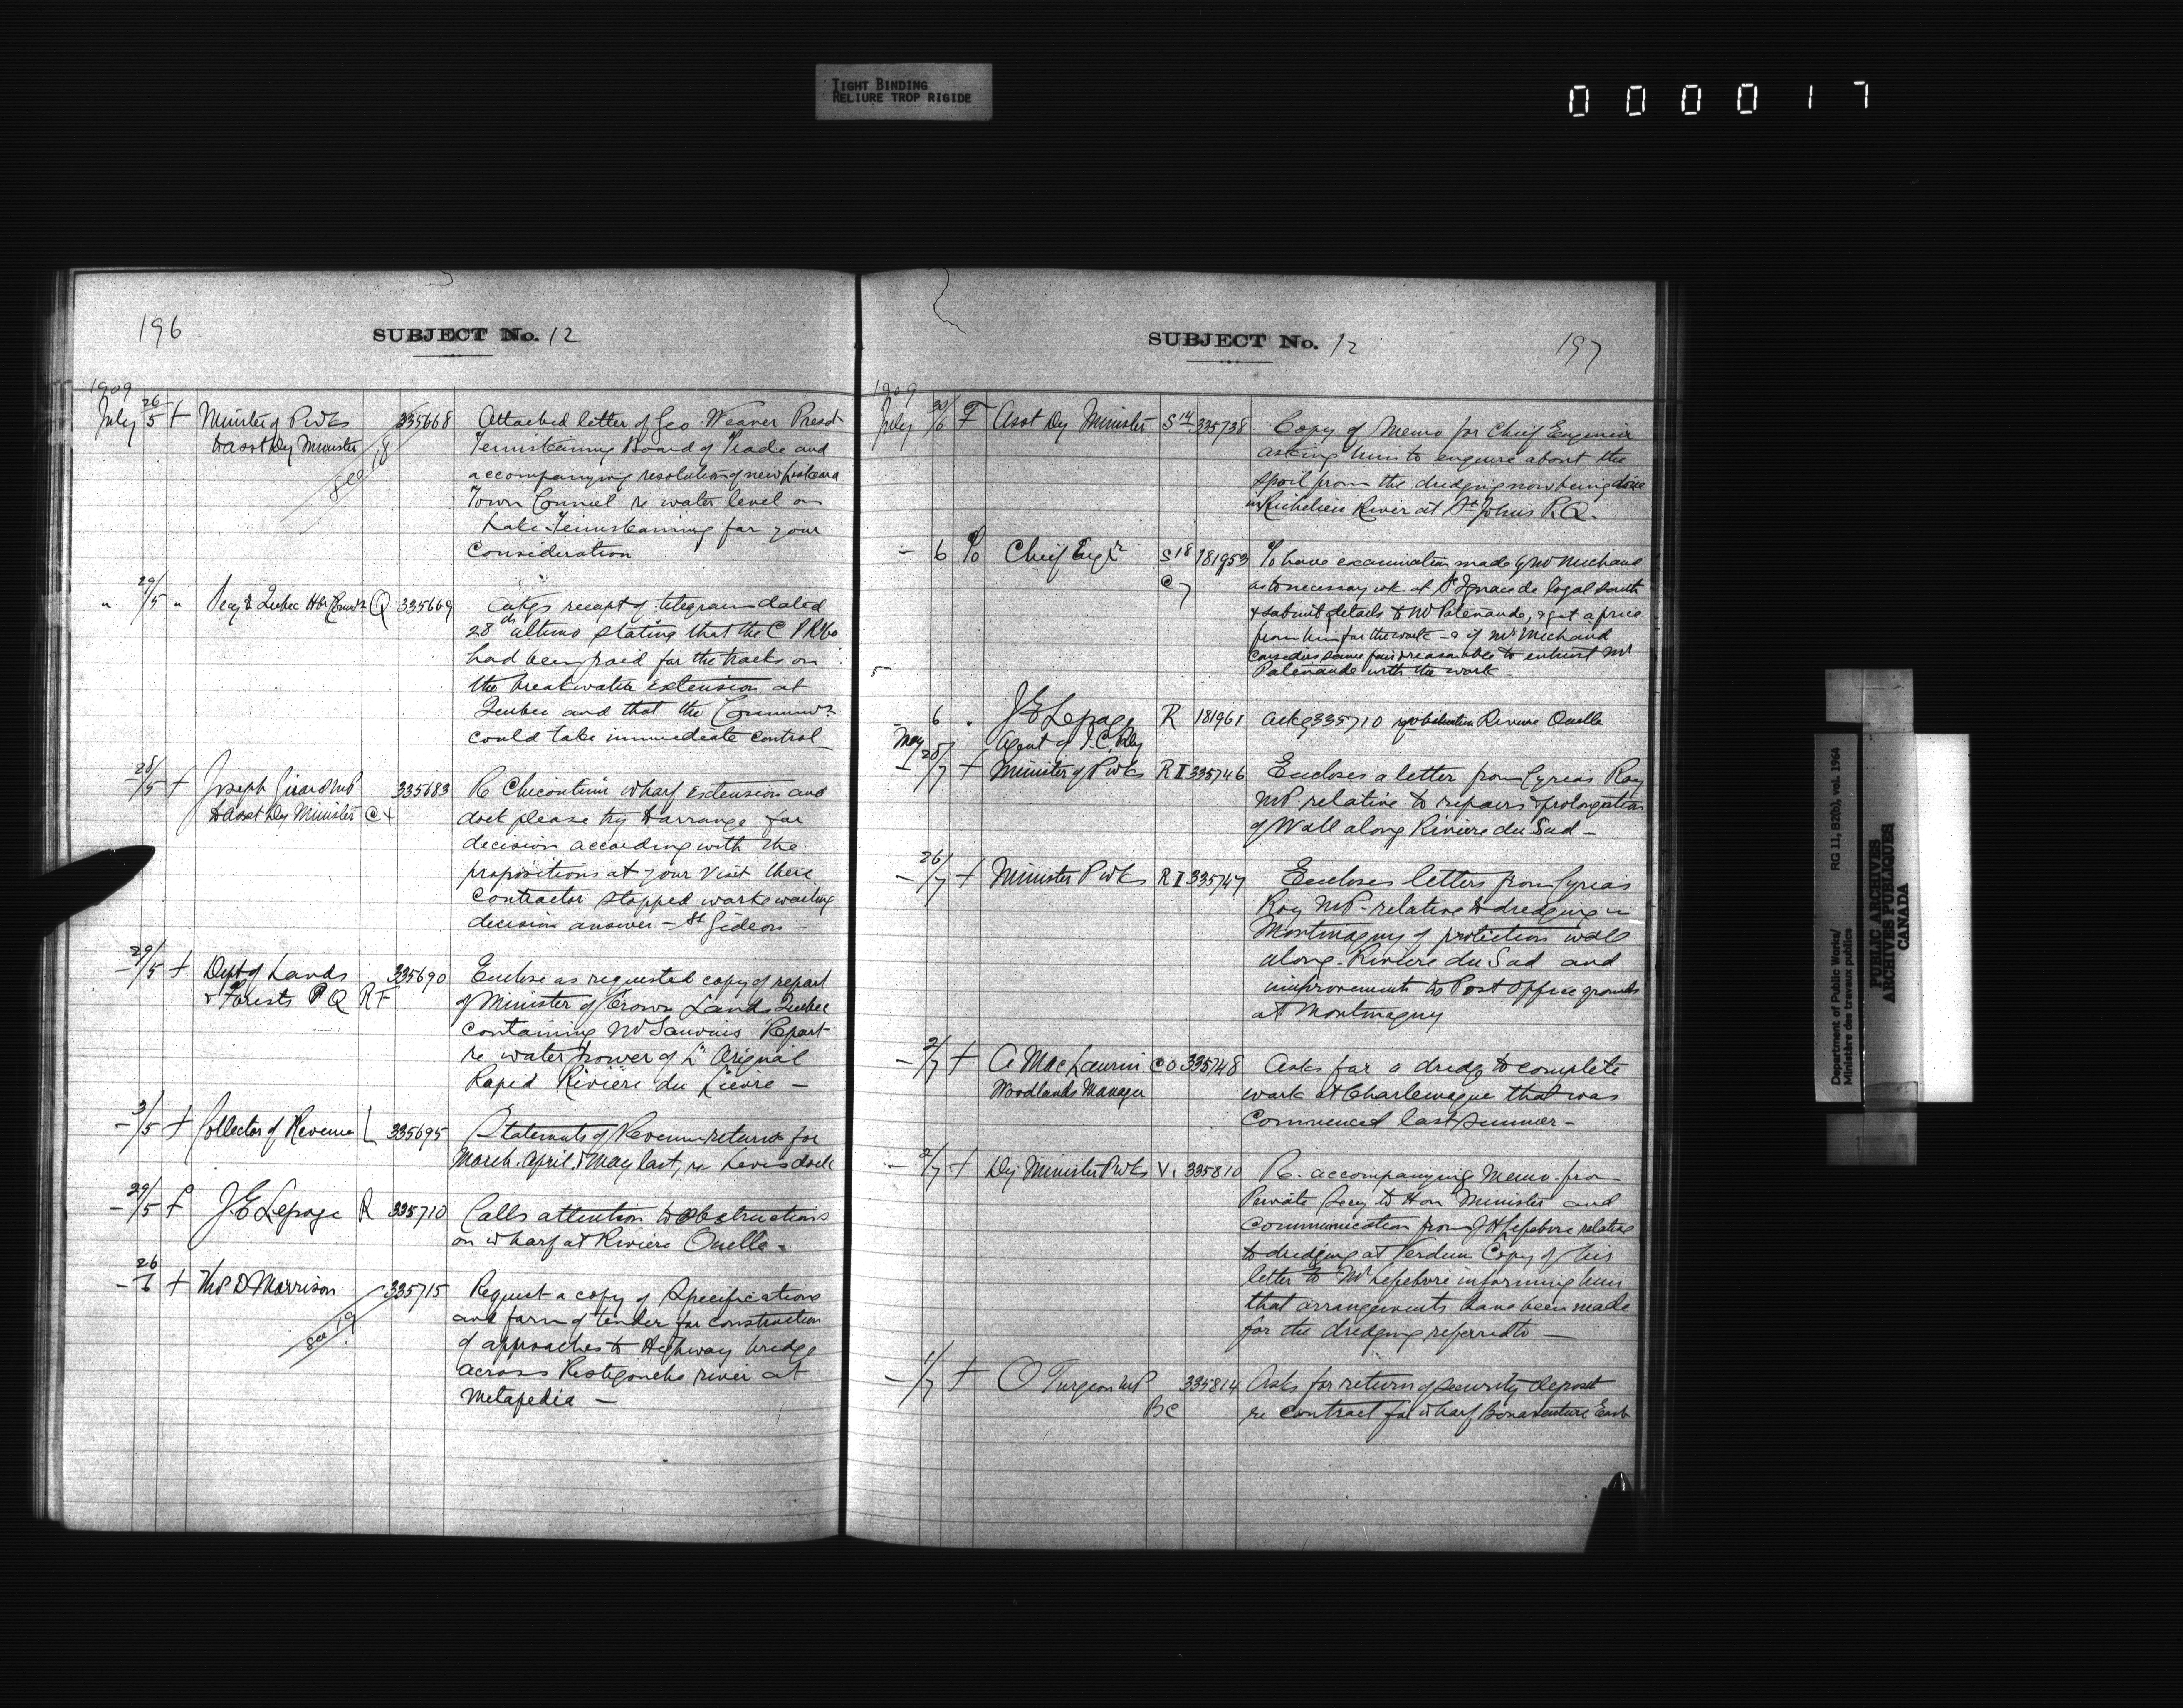 TIGHT BINDING
RELIURE TROP RIGIDE
0 0 0 0 1 7
196
SUBJECT No. 12
1909
July 26/5 f Minister of P Wks 335668 Attached letter of Geo Weaver Presdt
to asst Dy Minister Temiskaming Board of Trade and
see 18 accompanying resolution of new Liskeard
Town Council re water level on
Lake Temiskaming for your
consideration
" 29/5 " Secy Quebec Hbr Comrs Q 335669 Ackgs receipt of telegram dated
28th ultimo stating that the C P R Co
had been paid for the tracks on
the breakwater extension at
Quebec and that the Commrs
could take immediate control
- 28/5 f Joseph Girard MP 335683 Re Chicoutimi wharf extension and
to asst Dy Minister C + dock please try to arrange for
decision according with the
propositions at your visit there
Contractor stopped work waiting
decision answer - St Gedeon -
- 29/5 f Dept of Lands 335690 Enclose as requested copy of report
& Forests P Q R F of Minister of Crown Lands Quebec
containing Mr Sauvais Report
re water power of L'Orignal
Raped Rivière du Lievre -
- 3/5 f Collector of Revenue L 335695 Statements of Revenue returns for
March. April & May last, re Levis dock
- 29/5 f J E Lepage R 335710 Calls attention to obstructions
on wharf at Riviere Ouelle -
- 26/6 f Thos D Morrison 335715 Request a copy of Specifications
see 19 and form of tender for construction
of approaches to Highway bridge
across Restigouche river at
Metapedia -
SUBJECT No. 12
197
1909
July 30/6 F Asst Dy Minister S 14 335738 Copy of Memo for Chief Engineer
asking him to enquire about the
spoil from the dredging now being done
in Richelieu River at St Johns P.Q.
- 6 To Chief Engr S 18 181953 To have examination made by Mr Michaud
C 7 as to necessary wk at St Ignace de Loyal south
& submit details to Mr Patenaude, & get a price
from him for the work - & if Mr Michaud
considers same fair & reasonable to entrust Mr
Patenaude with the work -
- 6 " J E Lepage R 181961 Ackg 335710 re obstruction Riviere Ouelle
Agent of I. C. Rly
May
- 28/7 f Minister of P Wks R I 335746 Encloses a letter from Cyrias Roy
MP relative to repairs & prolongation
of Wall along Rivière du Sud -
- 26/7 f Minister P Wks R I 335747 Encloses letters from Cyrias
Roy MP - relative to dredging in
Montmagny of protection wall
along Riviere du Sud and
improvements to Post Office grounds
at Montmagny
- 2/7 f A MacLaurin C O 335748 Asks for a dredge to complete
Woodlands Manager work at Charlemagne that was
commenced last summer -
- 2/7 f Dy Minister P Wks V. 335810 Re. accompanying Memo. from
Private Secy to Hon Minister and
communication from J H Lefebvre relative
to dredging at Verdun Copy of his
letter to Mr Lefebvre informing him
that arrangements have been made
for the dredging referred to -
- 1/7 f O Turgeon MP 335814 Asks for return of security deposit
B C re contract for wharf Bonaventure East
Department of Public Works/ RG 11, B2(b), vol. 1964
Ministère des travaux publics
PUBLIC ARCHIVES
ARCHIVES PUBLIQUES
CANADA